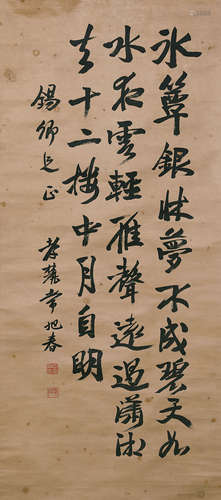 冰簟銀牀夢不成碧天如
水夜雲輕雁聲遠過瀟湘
去十二樓中月自明
錫卿兄正
孝麓常旭春